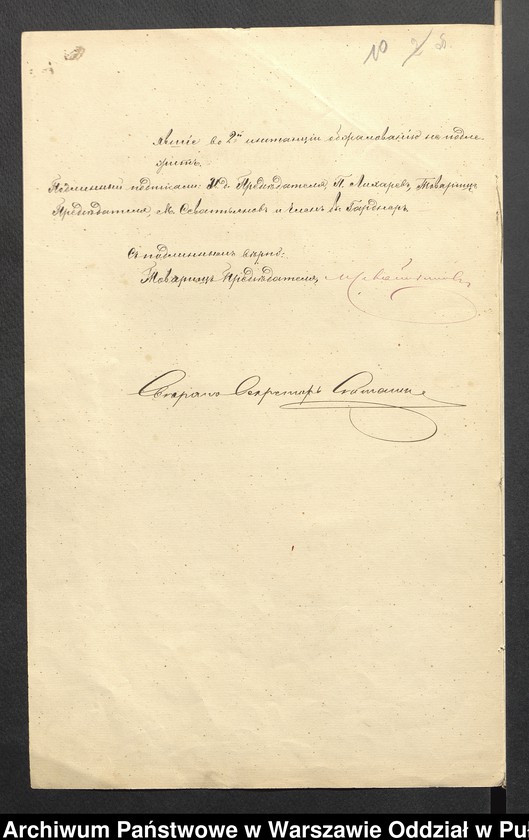 10 2
явшіе во 2й инстанціи обжалованію не подле-
житъ.
Подлинный подписали: И.д. Предсѣдателя П. Лихаревъ, Товарищъ
Предсѣдателя, М. Севастьяновъ и Членъ В. Гарднеръ.
Съ подлиннымъ вѣрно:
Товарищъ Предсѣдателя, М Севастьяновъ
Секретарь
Archiwum Państwowe w Warszawie Oddział w Pu